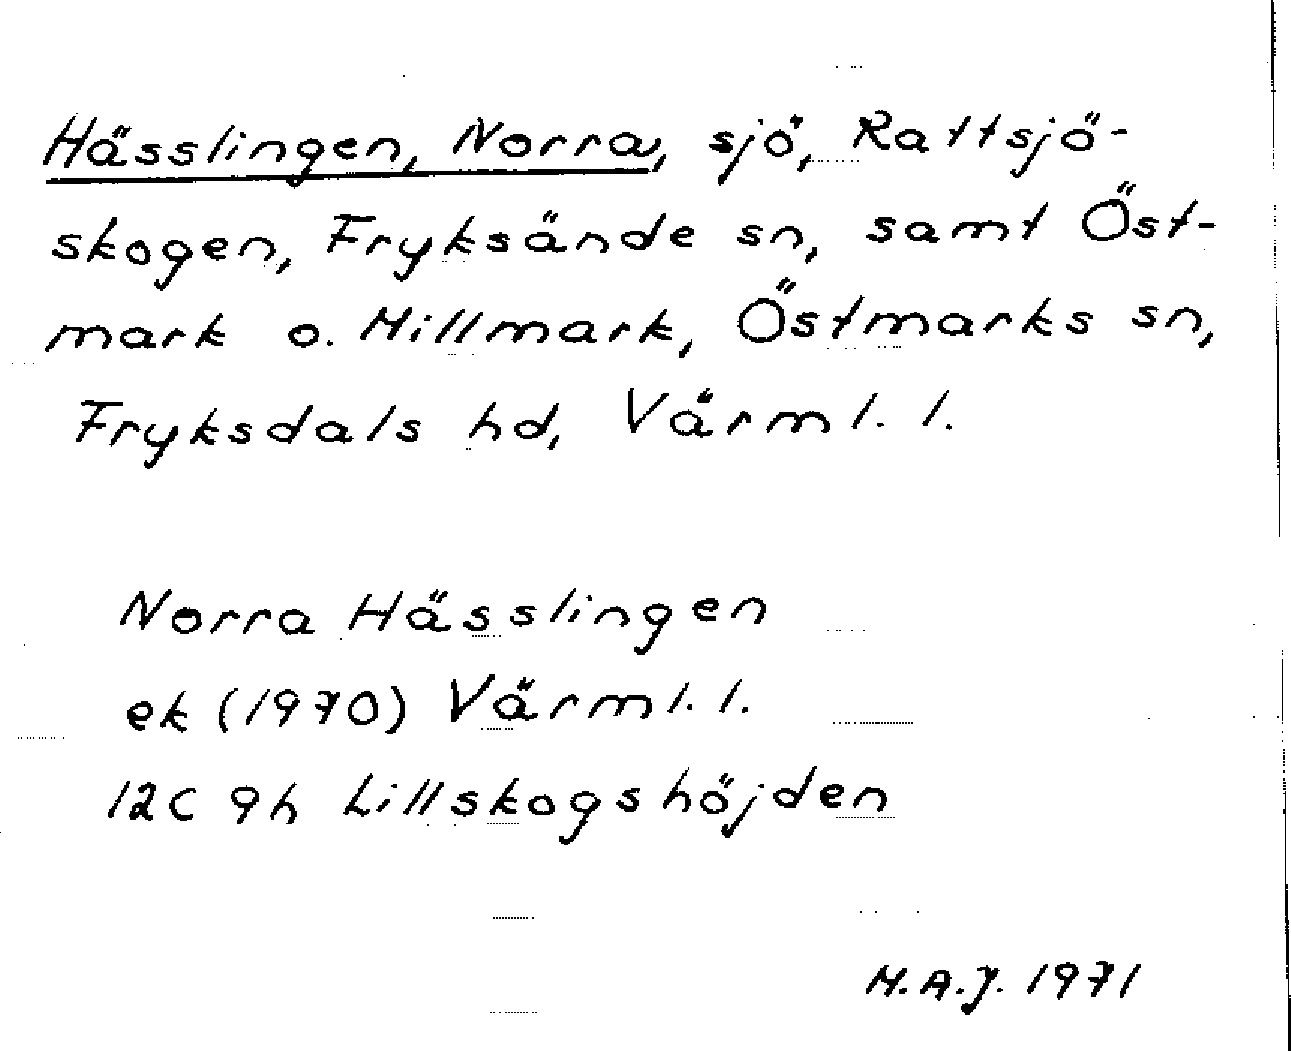 Hässlingen, Norra, sjö, Rattsjö-
skogen, Fryksände sn, samt Öst-
mark o. Millmark, Östmarks sn,
Fryksdals hd, Värml. l.
Norra Hässlingen
ek (1970) Värml. l.
12C 9h Lillskogshöjden
M.A.J. 1971